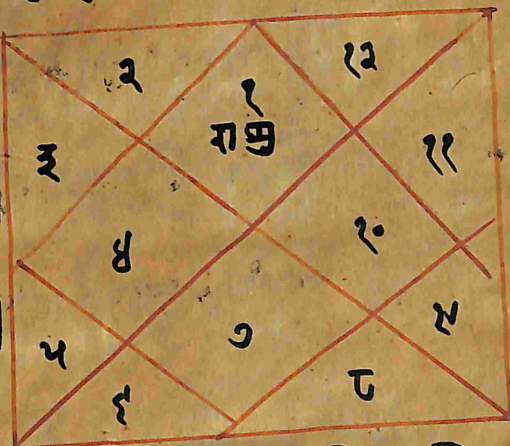 २ १ १२
३ ११
४ १०
५ ७ ९
६ ८